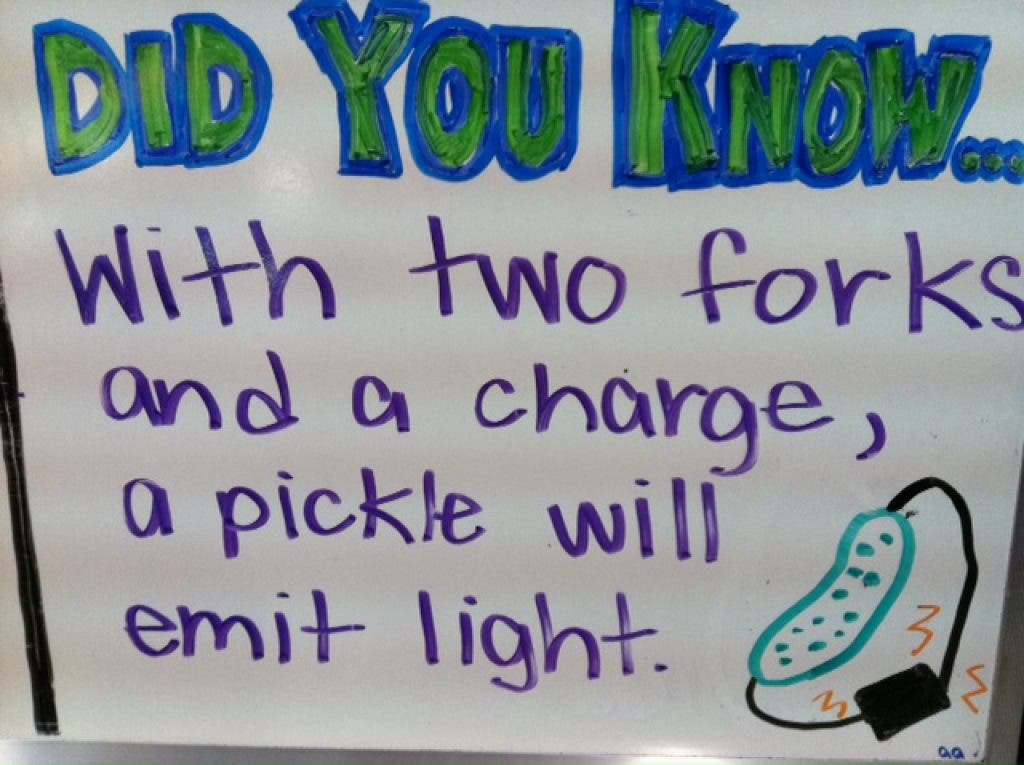 DID YOU KNOW...
With two forks
and a charge,
a pickle will
emit light.
aa